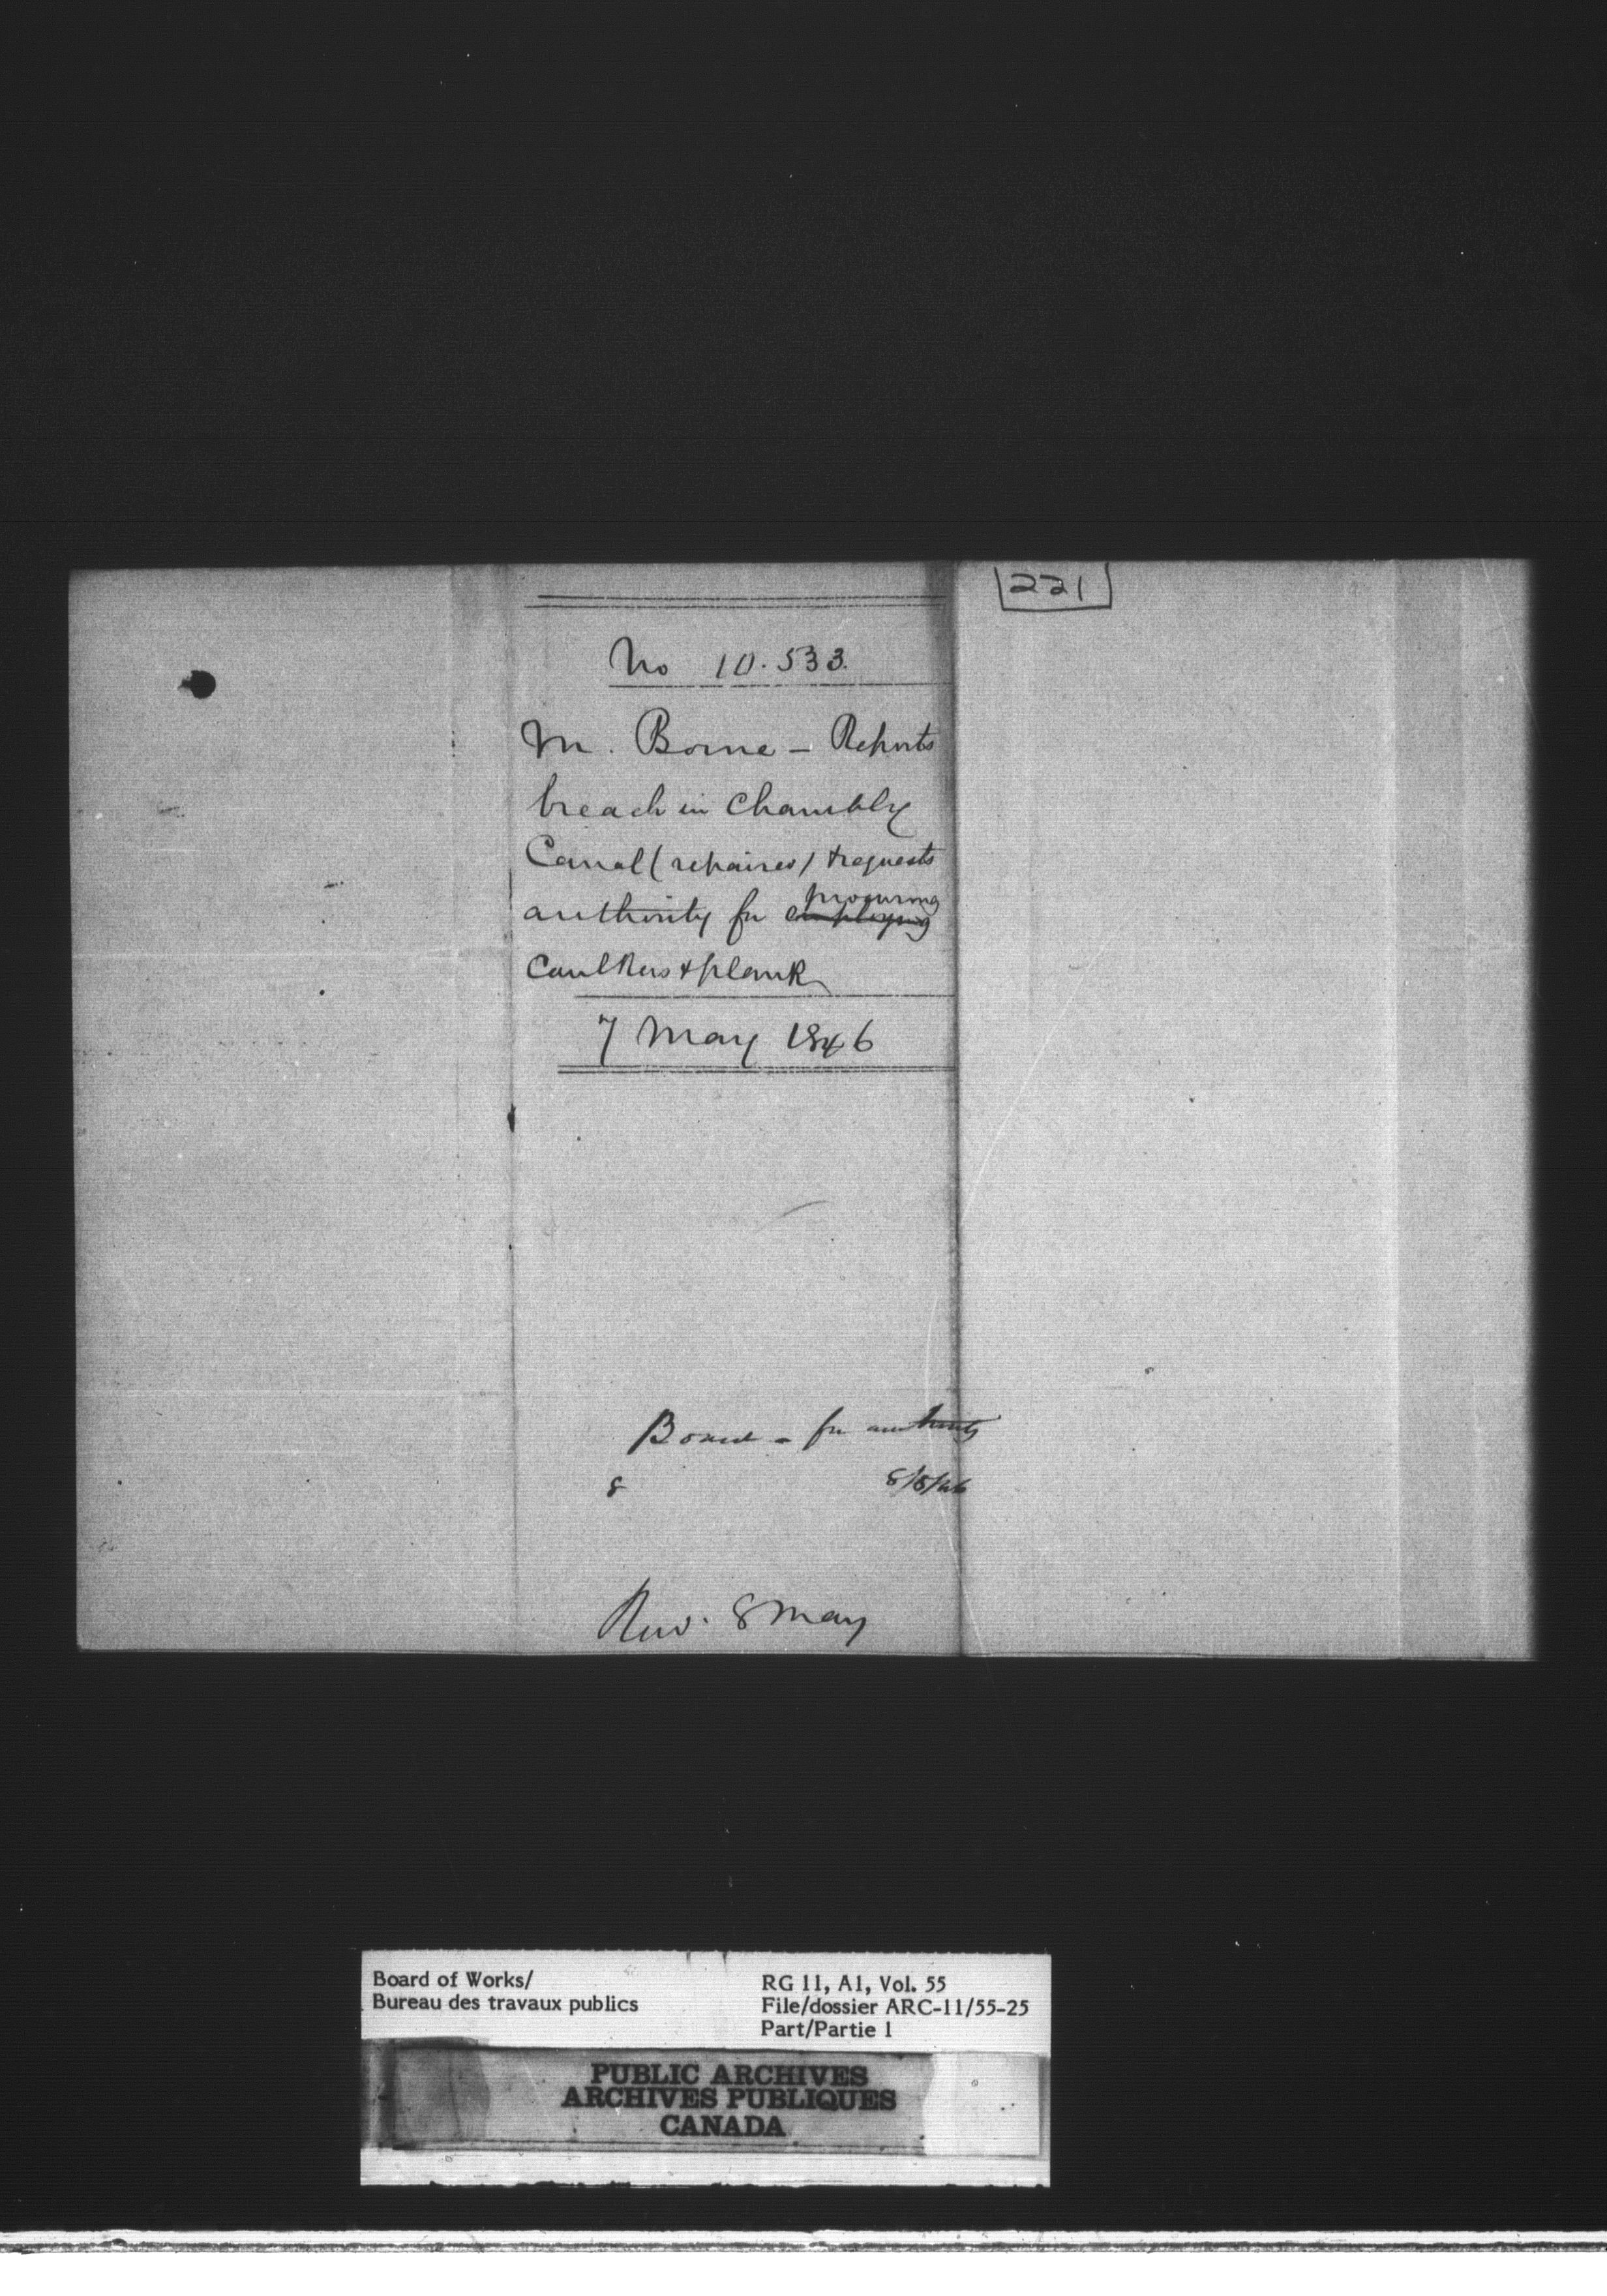 221
No 10.533.
M. Borne - Reports
breach in Chambly
Canal (repaired) & requests
procuring
authority for employing
Caulkers & plank
7 May 1846
Board - for authority
8 8/5/46
8 May
Board of Works/
Bureau des travaux publics
RG 11, A1, Vol. 55
File/dossier ARC-11/55-25
Part/Partie 1
PUBLIC ARCHIVES
ARCHIVES PUBLIQUES
CANADA